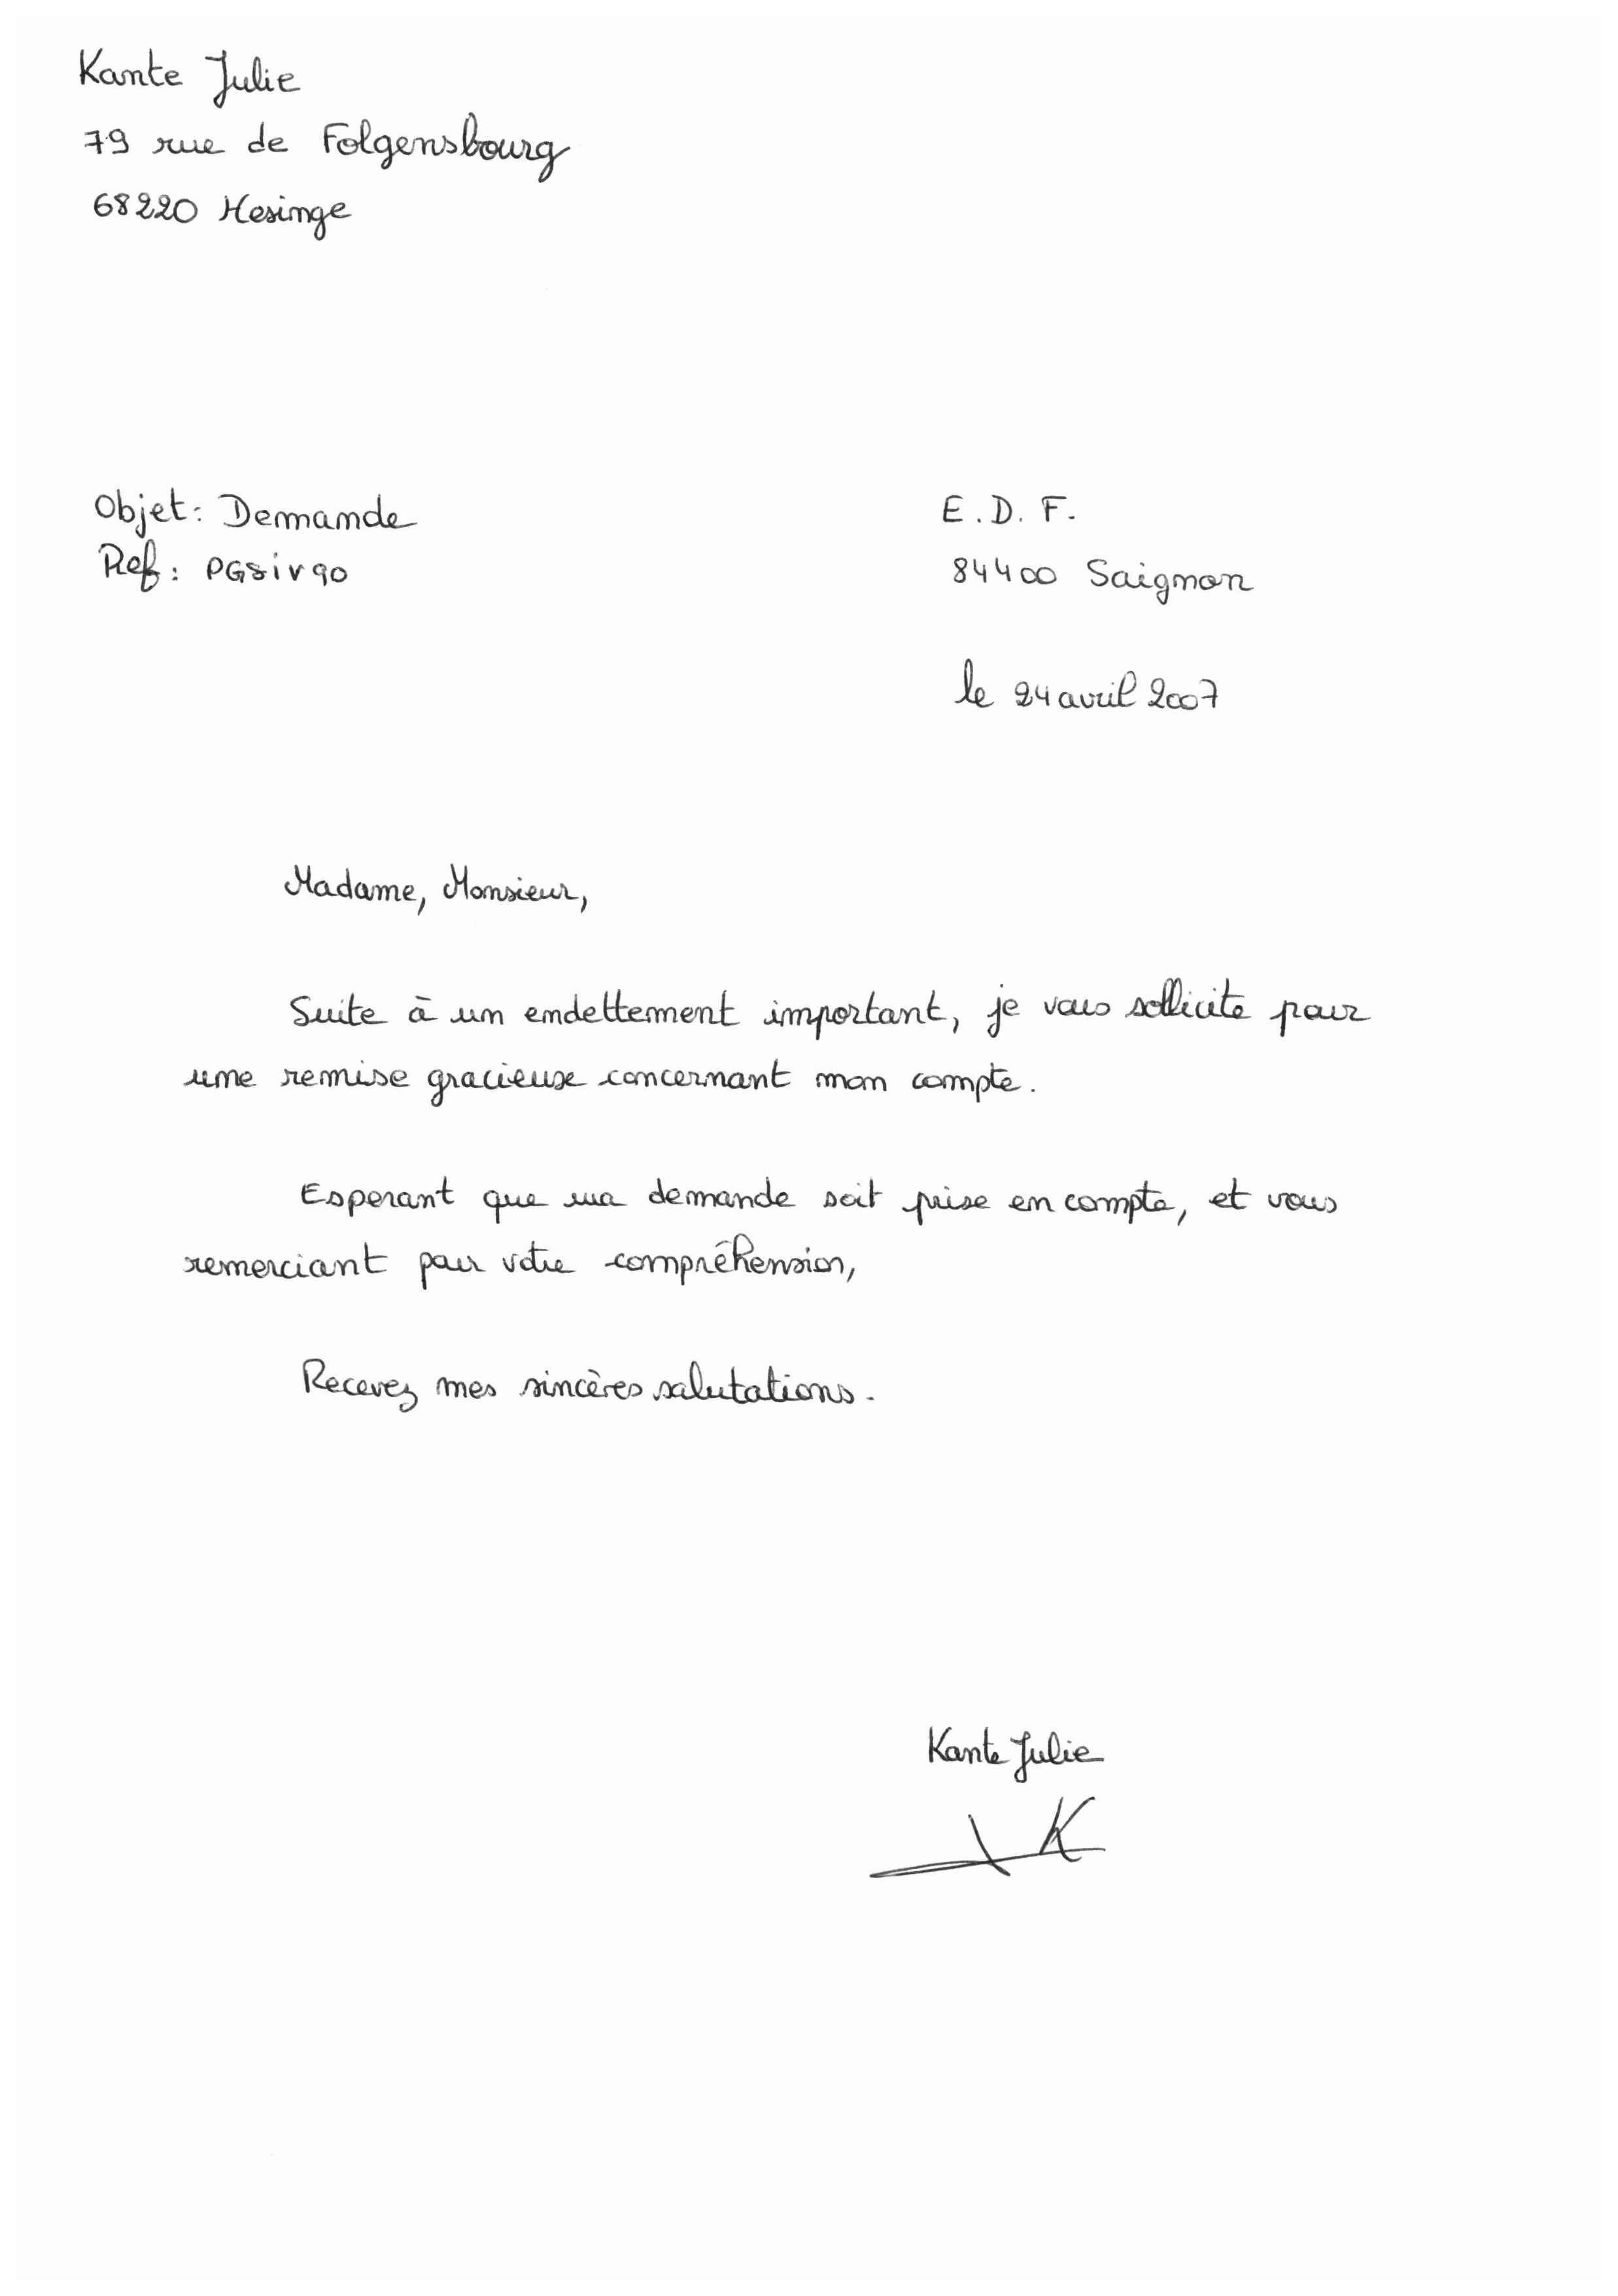 Kante Julie
79 rue de Folgensbourg
68220 Hesinge
Objet : Demande
Ref : PGSiv90
E.D.F.
84400 Saignon
le 24 avril 2007
Madame, Monsieur,
Suite à un endettement important, je vous sollicite pour
une remise gracieuse concernant mon compte.
Esperant que ma demande soit prise en compte, et vous
remerciant pour votre compréhension,
Recevez mes sincères salutations.
Kante Julie
K